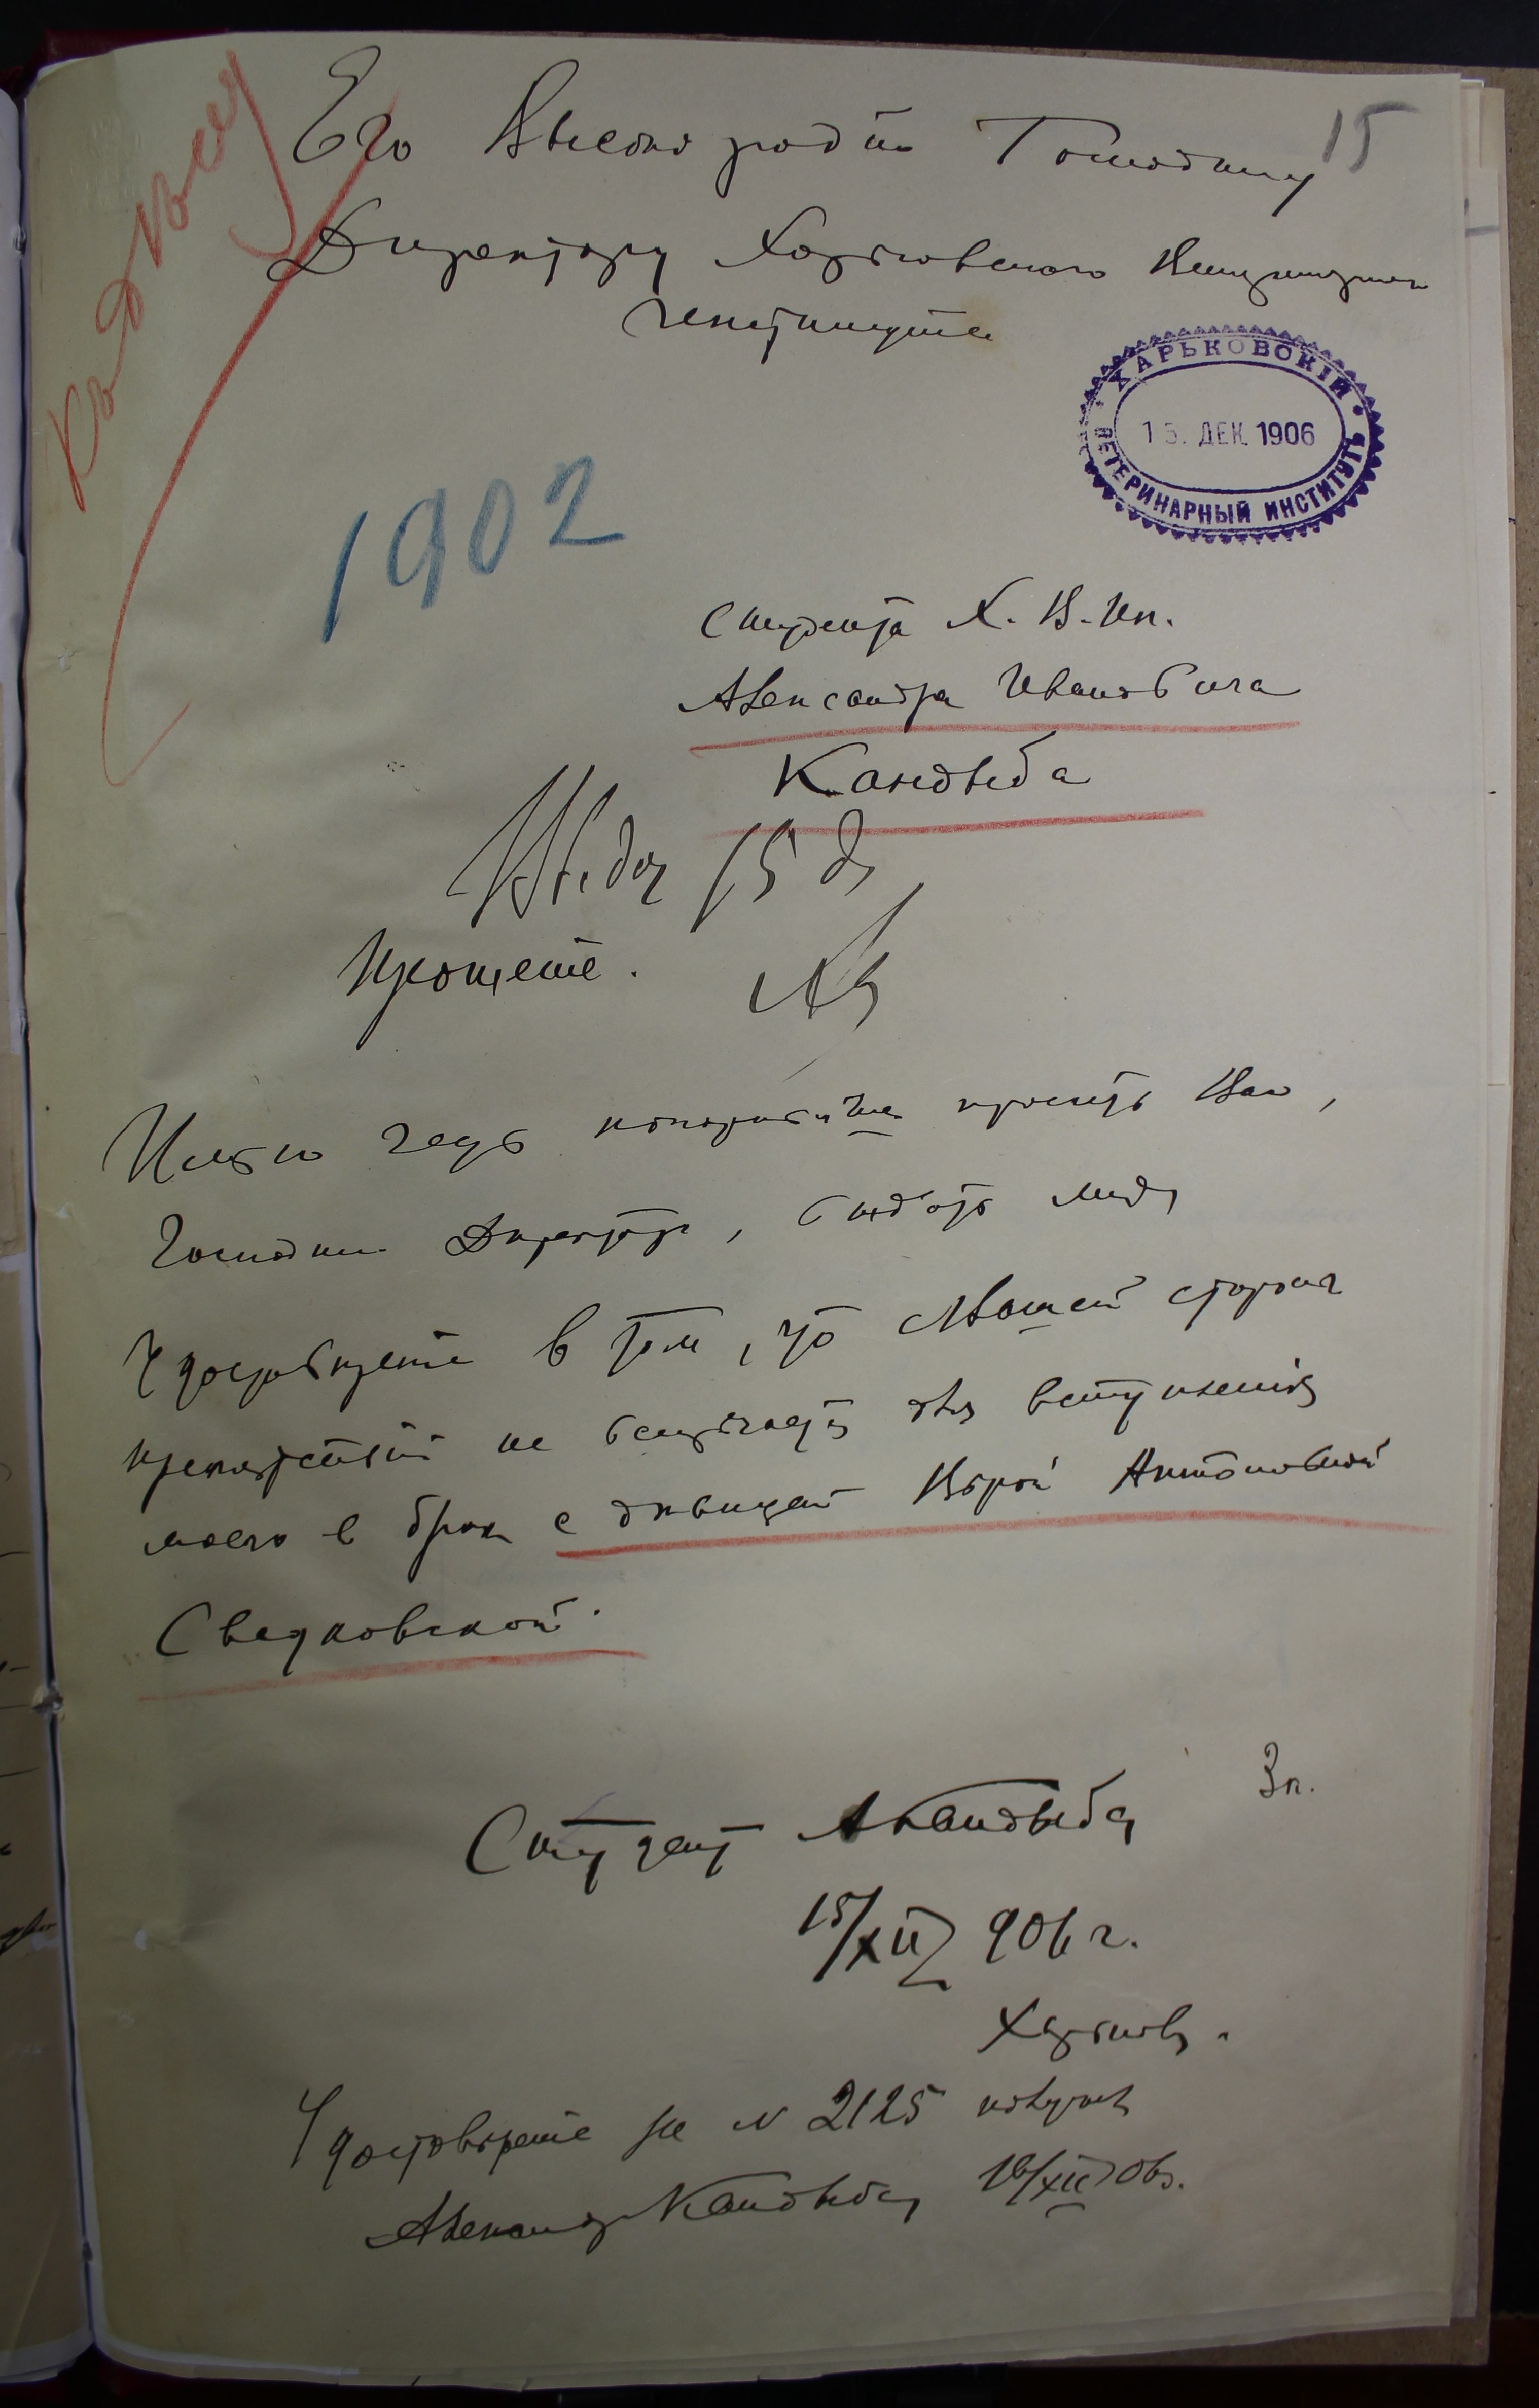 15
Къ дѣлу
Его Высокородiю Господину
Директору Харьковского Ветеринарн
Института
ХАРЬКОВСКІЙ
15. ДЕК. 1906
ВЕТЕРИНАРНЫЙ ИНСТИТУТЪ
1902
Студента Х. В. Ин.
Александра Ивановича
Кандыба
Выдать 15 д
Прошение.
Имею честь покорнейше просить Вас,
Господин Директор, выдать мне
удостоверение в том, что с Вашей стороны
препятствий не встречается для вступленiя
моего в брак с девицей Верой Антоновной
Сведковской.
3 к.
Студент А Кандыба
15/XII 906 г.
Харьков.
Удостоверение за № 2125 получил
Александр Кандыба 16/XII 06 г.